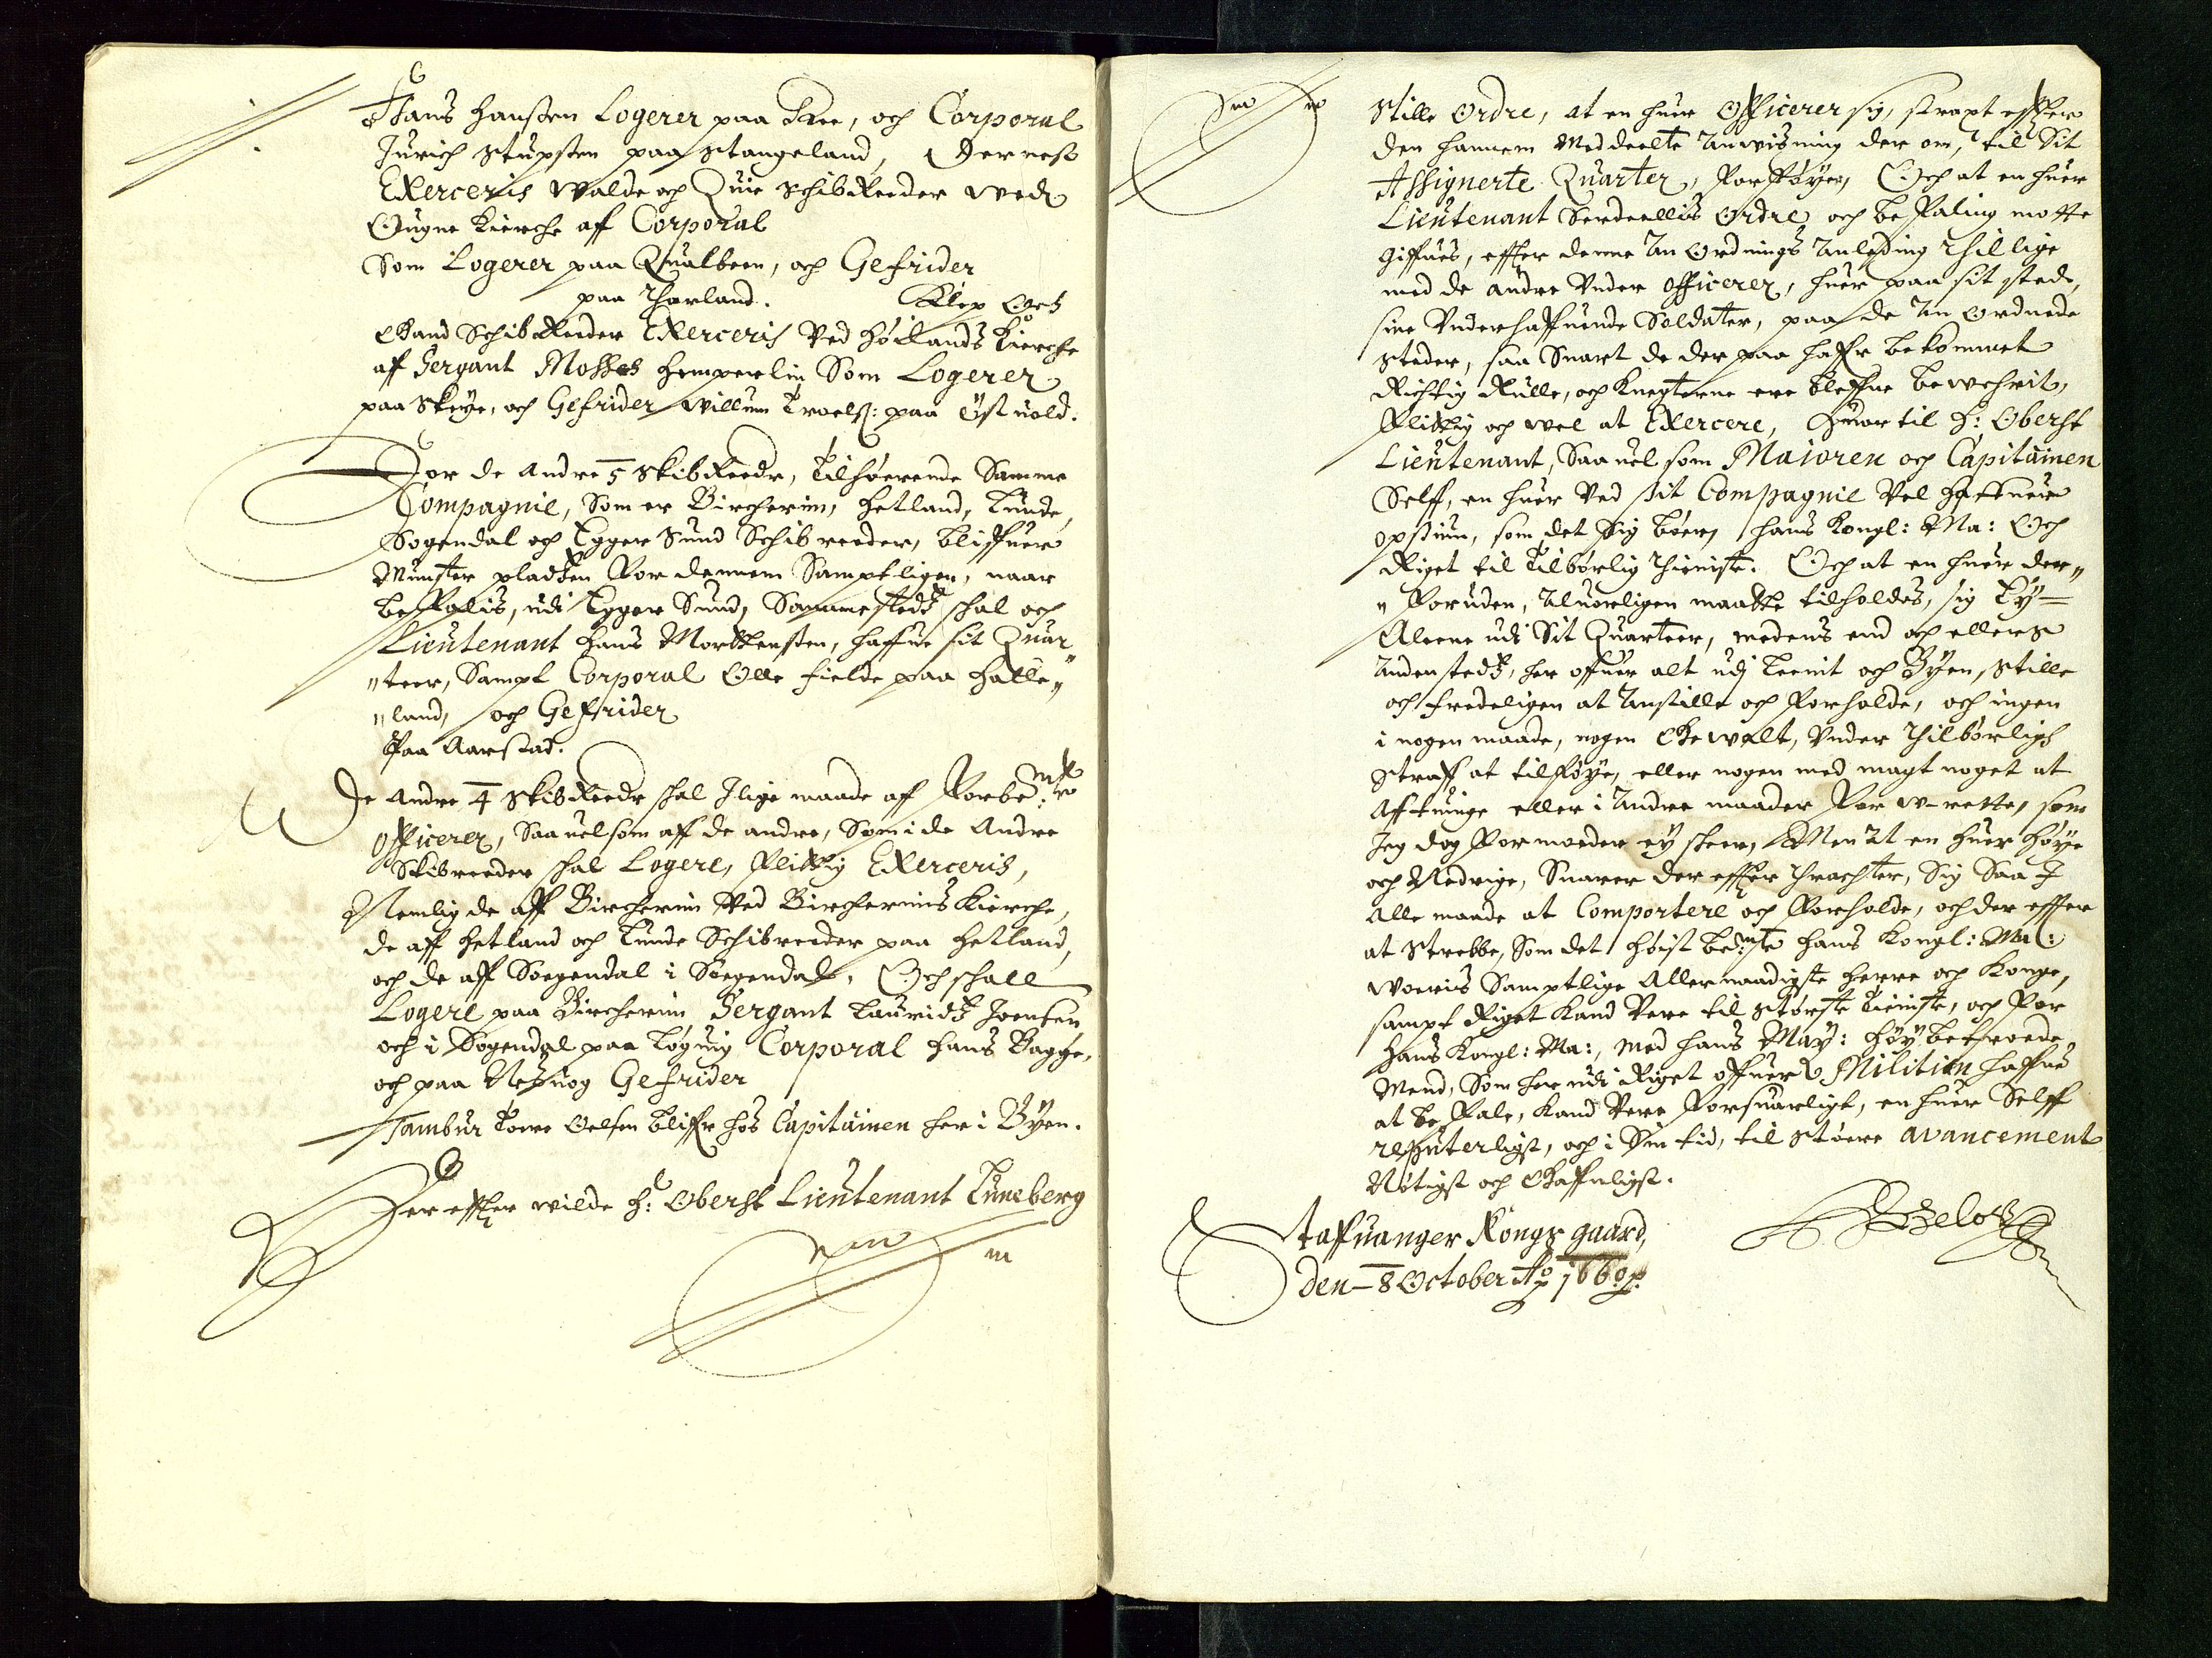 Hans Hanssen Logerer paa Tree, och Corporal
Jurich Stupsten paa Stangeland, Dernest
Exerceris Walde och Quie Schibreeder wed
Ougne Kierche aff Corporal
Som Logerer paa Qualbeen, och Gefrider
paa Tharland. Klep Och
Gand Schibreeder Exerceris Ved Höilands Kierche
af Sergant Mosses Hemperlin Som Logerer
paa Skeye, och Gefrider Willum Troels: paa Östuold.
For de Andre 5 Skibreedr, Tilhörende Samme
Compagnie, Som er Bircherim, Hetland, Lunde,
Sogendal och Egger Sund Schibreeder, bliffuer
Munster pladsen For dennem Samptligen, naar
befalis, udi Egger Sund, Sammestedz schal och
Lieutenant Hans Mortensen, haffue sit Quar"
"teer, Sampt Corporal Olle Fielde paa Halle"
"land, och Gefrider
Paa Aarstad.
De Andre 4 Skibreedr schal J lige maade aff Forbemte:
Officerer, Saauelsom aff de andre, Som i de Andre
Skibreeder schal Logere, Flittig Exerceris,
Nemlig de aff Bircherim Ved Bircherims Kierche,
de aff Hetland och Lunde Schibreeder paa Hetland,
och de aff Soegendal i Soegendal, Och schall
Logere paa Bircherim Sergant Lauridz Joensen
och i Sogendal paa Lögnig Corporal Hans Bagge,
och paa Nesuog Gefrider
Tambur Tore Oelsen blifr hos Capitainen her i Byen.
Her effter wilde H: Oberst Lieutenant Luneberg
Stille Ordre, at en huer Officerer sig, strapt effter
den hannem Meddeelte Anwisning der om, til Sit
Assignerte Quarter, Forföyer, Och at en huer
Lieutenant Serdeellis Ordre och befaling motte
giffues, effter denne An Ordnings Anleding thillige
med de andre Under Officerer, huer paa sit sted,
sine Underhaffuende Soldater, paa de An Ordnede
Steder, saa Snart de der paa hafr bekommet
Richtig Rulle, och Knegterne ere bleffne bewehrit,
Flittig och wel at Exercere, Huor til H: Oberst
Lieutenant, Saauel som Maioren och Capitainen
Self, en huer Ved sit Compagnie Vel haffuer
opsiun, som det Sig bör, Hans Kongl: Ma: Och
Riget til Tilbörlig Thieniste. Och at en huer der"
"Foruden, Aluorligen maatte tilholdes, sig Ty=
Aleene udi Sit Quarteer, medens end och ellers
Andenstedz, her offuer alt udj Leenit och Byen, Stille
och Fredeligen at Anstille och Forholde, och ingen
i nogen maade, nogen Gewalt, Under Thilbörligs
Straff at tilföye, eller nogen med magt noget at
Afftuinge eller i Andre maader For w-rette, som
Jeg dog Formoder ey skeer, Men At en huer Höye
och Nedrige, Snarer der effter Thrachter, Sig Saa J
Alle maade at Comportere och Forholde, och der effter
at Strebbe, Som det Höist bemte: Hans Kongl: Ma:
Woeris Samptlige Allernaadigste Herre och Konge,
Sampt Riget Kand Vere til Störste Tieniste, och For
Hans Kongl: Ma:, med Hans May: Höybetroede
Mend, Som her udi Riget offuer Militien haffue
at befale, Kand Vere Forsuarligt, en huer Selff
reputerligst, och i Sin tid, til Större avancement
Nötigst och Gaffnligst.
Staffuanger Kongs gaard,
den 8 October Ao 1660.